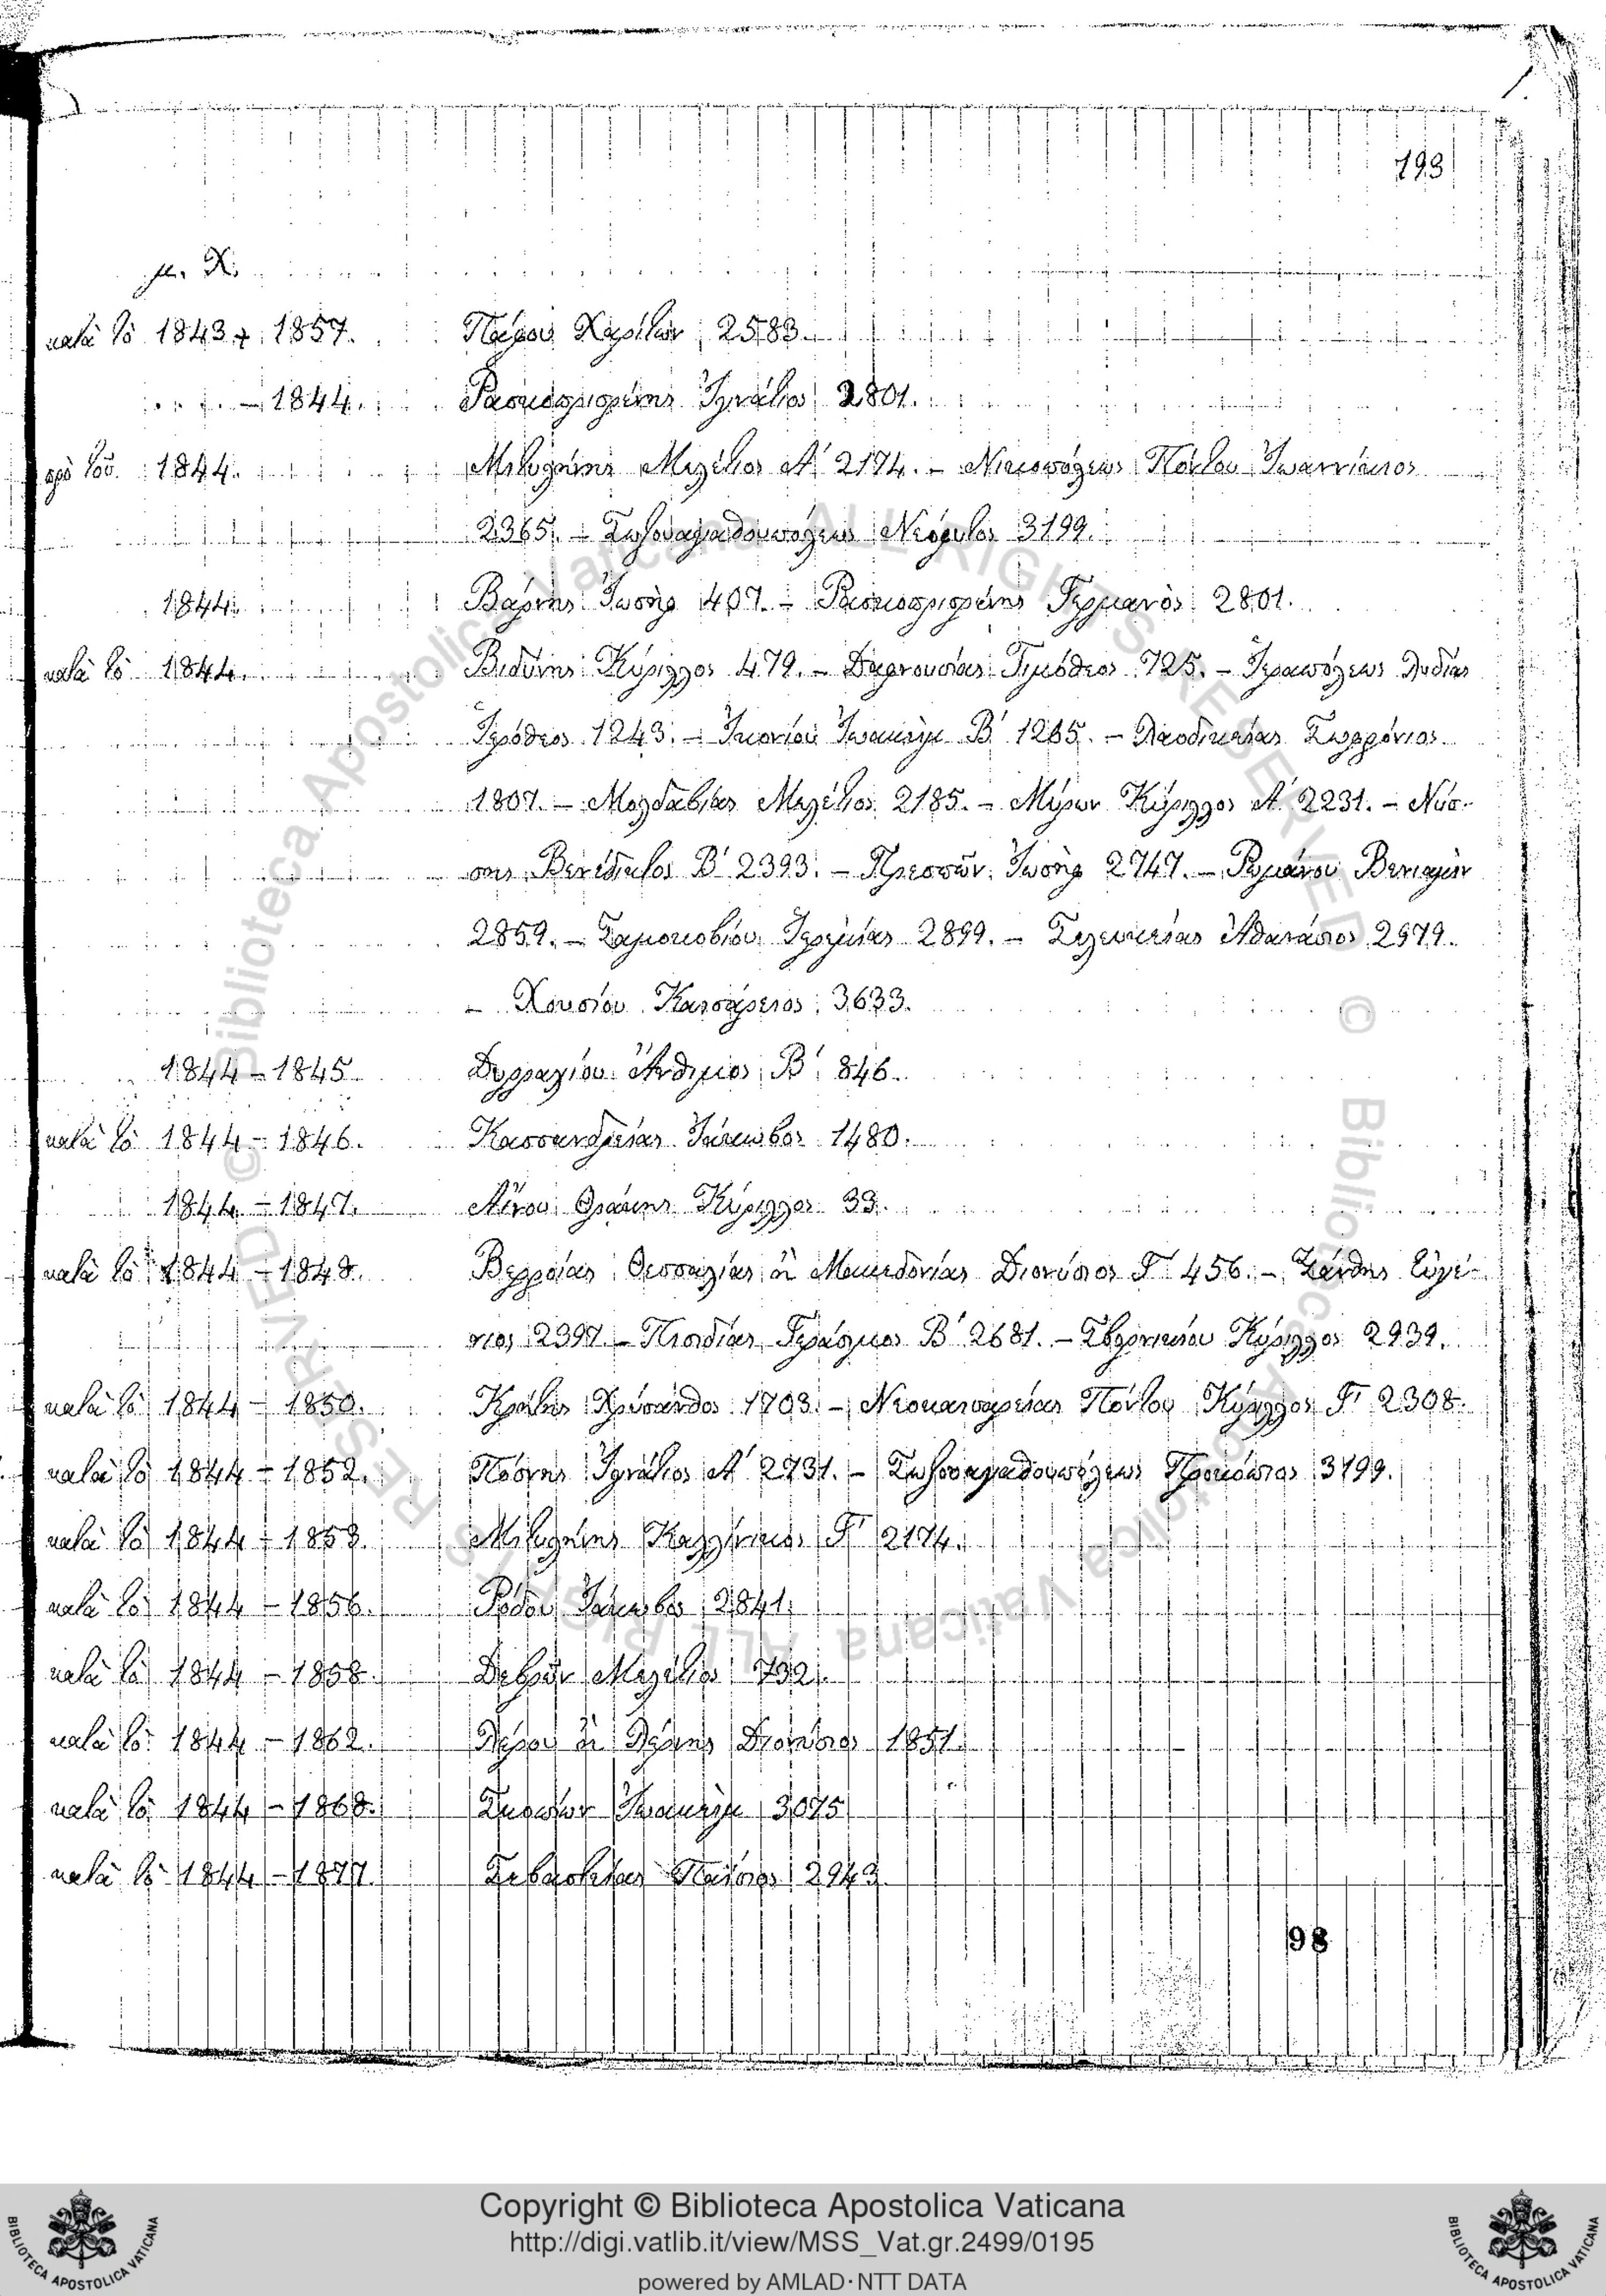 193
μ. Χ.
κατὰ τὸ 1843 + 1857. Πάρου Χαρίτων 2583.
– 1844. Ρασκοπρισρένης Ἰγνάτιος 2801.
πρὸ τοῦ 1844. Μιτυλήνης Μελέτιος Α΄ 2174. – Νικοπόλεως Πόντου Ἰωαννίκιος
2365. – Σωζουαγαθουπόλεως Νεόφυτος 3199.
1844. Βάρνης Ἰωσὴφ 407. – Ρασκοπρισρένης Γερμανὸς 2801.
κατὰ τὸ 1844. Βιδύνης Κύριλλος 479. – Δαφνουσίας Τιμόθεος 725. – Ἱεραπόλεως Λυδίας
Ἱερόθεος 1243. – Ἰκονίου Ἰωακεὶμ Β΄ 1265. – Λαοδικείας Σωφρόνιος
1807. – Μολδαβίας Μελέτιος 2185. – Μύρων Κύριλλος Α΄ 2231. – Νύσ-
σης Βενέδικτος Β΄ 2393. – Πρεσπῶν Ἰωσὴφ 2747. – Ρωμάνου Βενιαμὶν
2859. – Σαμοκοβίου Ἱερεμίας 2899. – Σελευκείας Ἀθανάσιος 2979.
– Χουσίου Καισάρειος 3633.
1844 – 1845 Δυρραχίου Ἄνθιμος Β΄ 846.
κατὰ τὸ 1844 – 1846. Κασσανδρείας Ἰάκωβος 1480.
1844 – 1847. Αἴνου Θράκης Κύριλλος 33.
κατὰ τὸ 1844 – 1848. Βερροίας Θεσσαλίας ἢ Μακεδονίας Διονύσιος Γ΄ 456. – Ξάνθης Εὐγέ-
νιος 2397 – Πισιδίας Γεράσιμος Β΄ 2681. – Σβορνικίου Κύριλλος 2939.
κατὰ τὸ 1844 – 1850. Κρήτης Χρύσανθος 1703. – Νεοκαισαρείας Πόντου Κύριλλος Γ΄ 2308.
κατὰ τὸ 1844 – 1852. Πόσνης Ἰγνάτιος Α΄ 2731. – Σωζουαγαθουπόλεως Προκόπιος 3199.
κατὰ τὸ 1844 – 1853. Μιτυλήνης Καλλίνικος Γ΄ 2174.
κατὰ τὸ 1844 – 1856. Ρόδου Ἰάκωβος 2841.
κατὰ τὸ 1844 – 1858. Δεβρῶν Μελέτιος 732.
κατὰ τὸ 1844 – 1862. Λέρου ἢ Λέρνης Διονύσιος 1851.
κατὰ τὸ 1844 – 1868. Σκοπίων Ἰωακεὶμ 3075
κατὰ τὸ 1844 – 1877. Σεβαστείας Παΐσιος 2943
98
Copyright © Biblioteca Apostolica Vaticana
http://digi.vatlib.it/view/MSS_Vat.gr.2499/0195
powered by AMLAD·NTT DATA